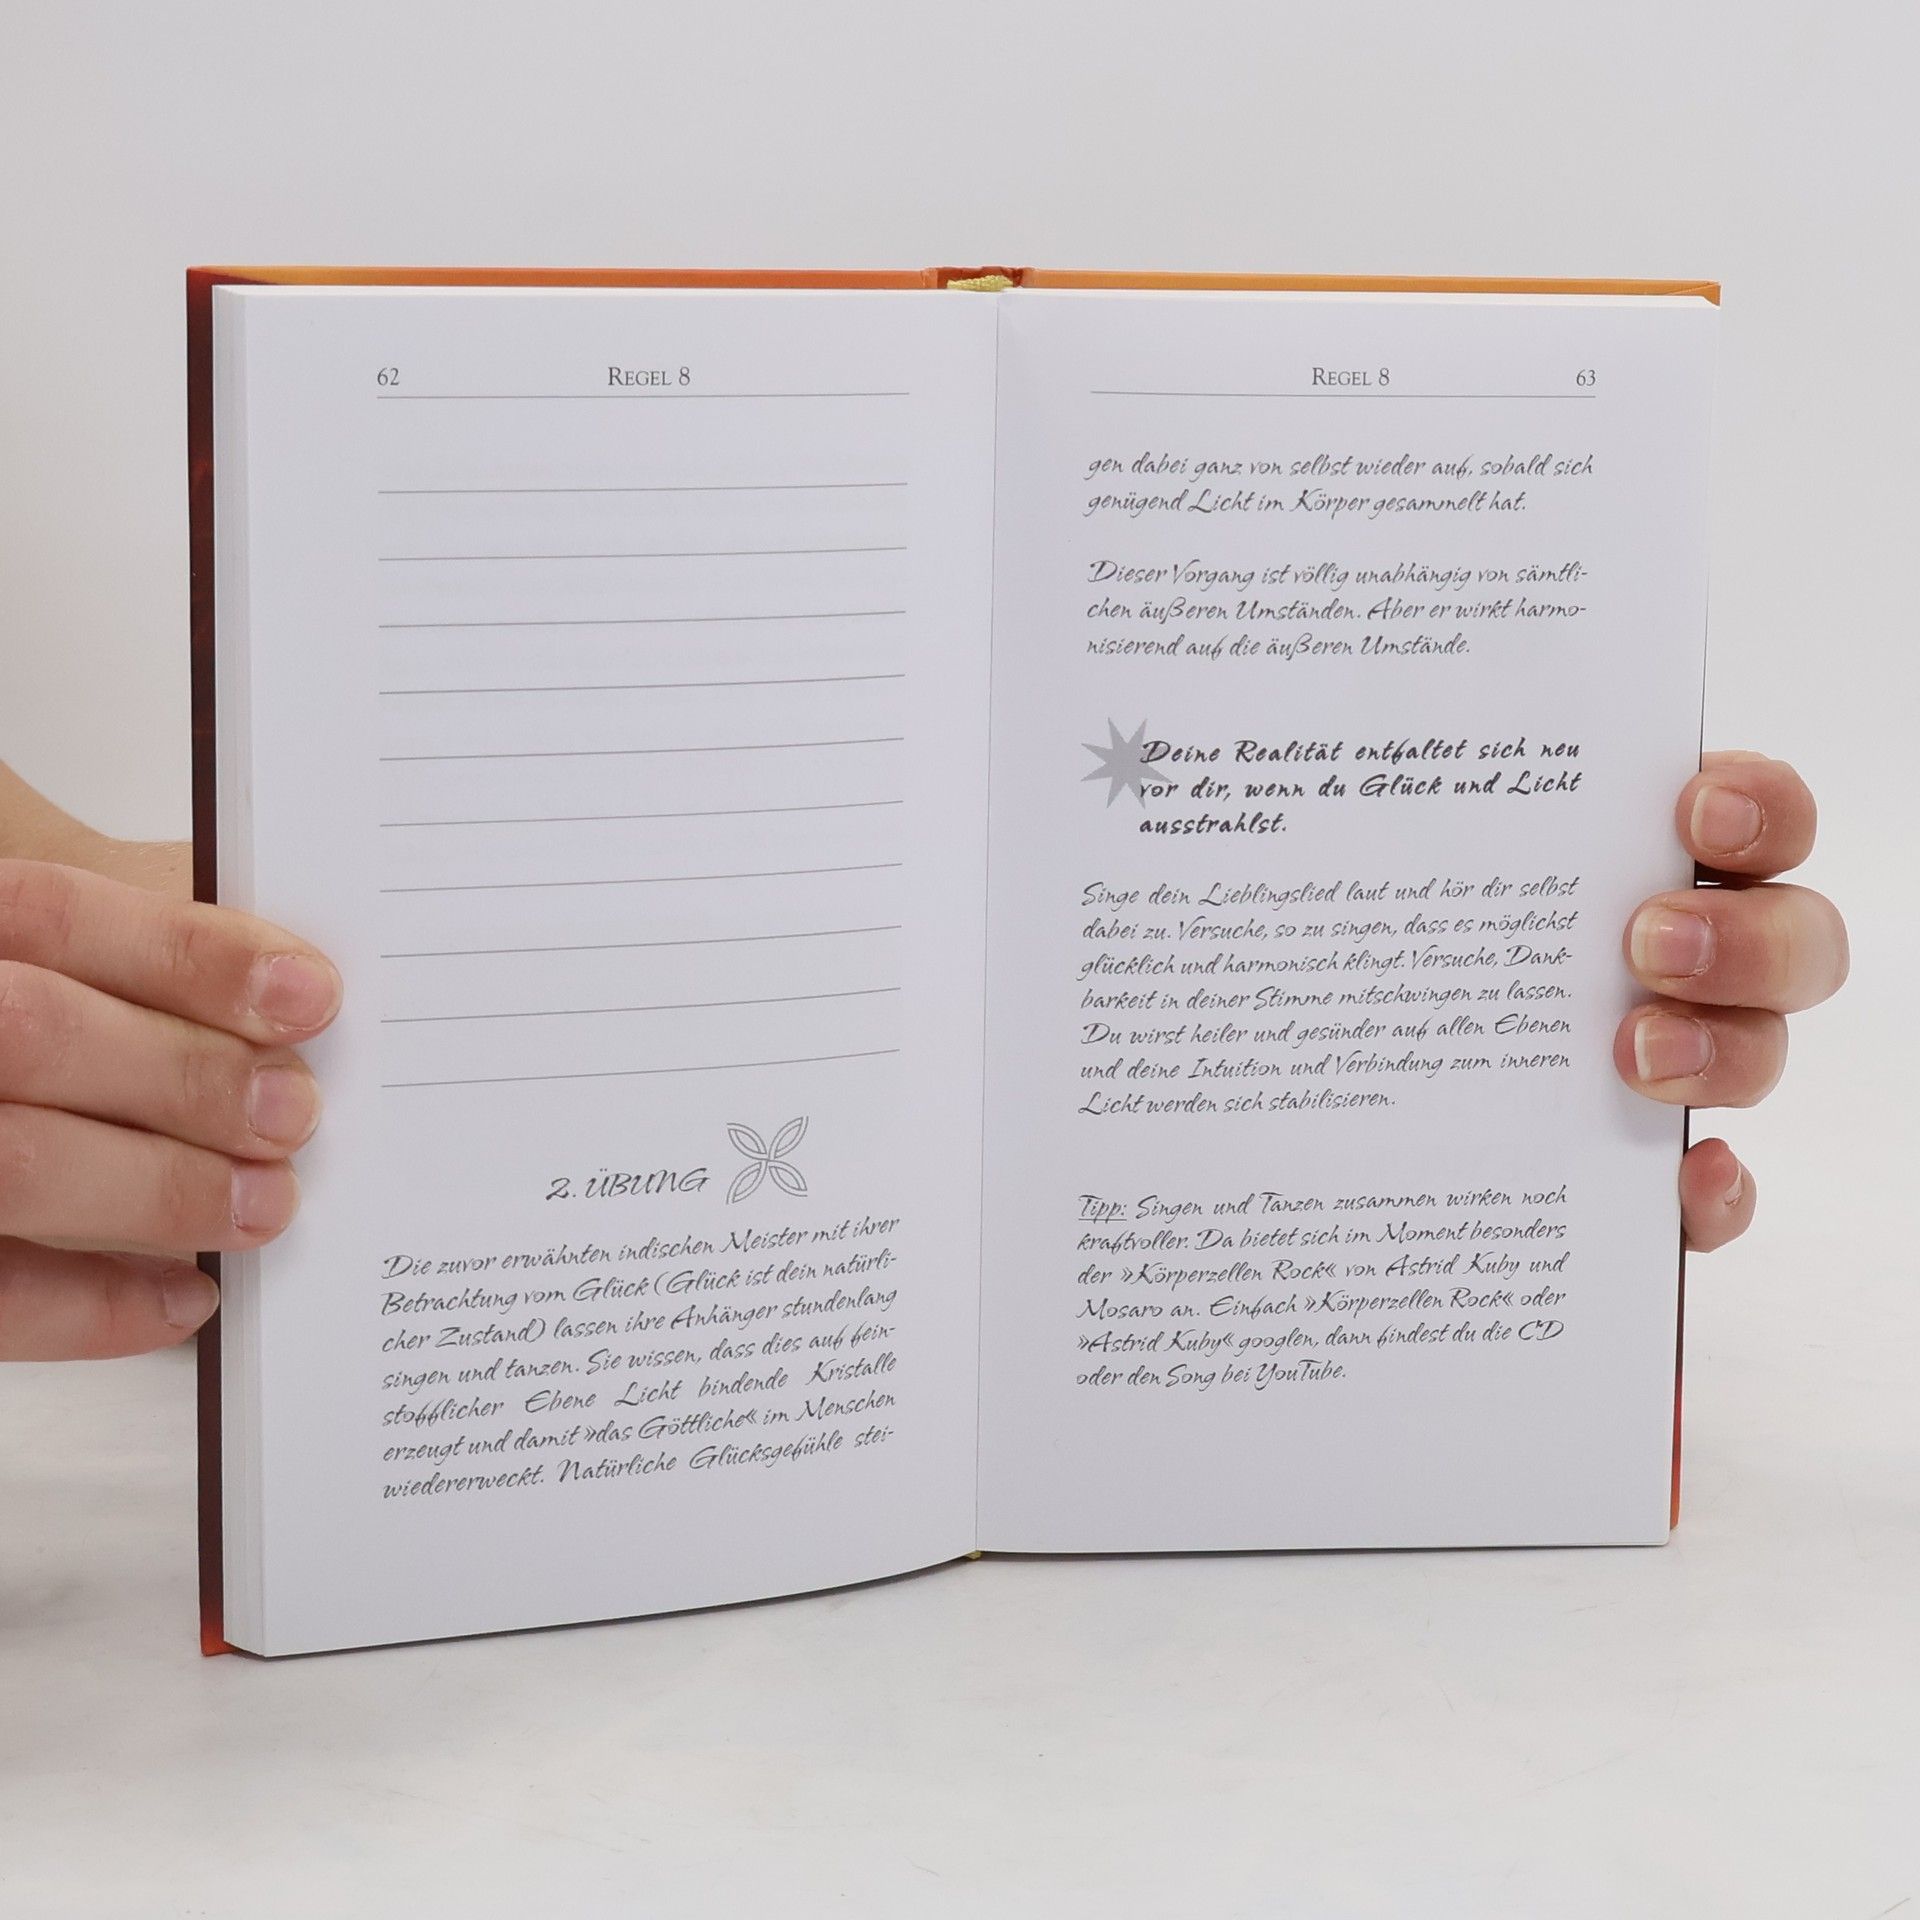 62
REGEL 8
2. ÜBUNG
Die zuvor erwähnten indischen Meister mit ihrer
Betrachtung vom Glück (Glück ist dein natürli-
cher Zustand) lassen ihre Anhänger stundenlang
singen und tanzen. Sie wissen, dass dies auf fein-
stofflicher Ebene Licht bindende Kristalle
erzeugt und damit »das Göttliche« im Menschen
wiedererweckt. Natürliche Glücksgefühle stei-
REGEL 8
63
gen dabei ganz von selbst wieder auf, sobald sich
genügend Licht im Körper gesammelt hat.
Dieser Vorgang ist völlig unabhängig von sämtli-
chen äußeren Umständen. Aber er wirkt harmo-
nisierend auf die äußeren Umstände.
Deine Realität entfaltet sich neu
vor dir, wenn du Glück und Licht
ausstrahlst.
Singe dein Lieblingslied laut und hör dir selbst
dabei zu. Versuche, so zu singen, dass es möglichst
glücklich und harmonisch klingt. Versuche, Dank-
barkeit in deiner Stimme mitschwingen zu lassen.
Du wirst heiler und gesünder auf allen Ebenen
und deine Intuition und Verbindung zum inneren
Licht werden sich stabilisieren.
Tipp: Singen und Tanzen zusammen wirken noch
kraftvoller. Da bietet sich im Moment besonders
der »Körperzellen Rock« von Astrid Kuby und
Mosaro an. Einfach »Körperzellen Rock« oder
»Astrid Kuby« googlen, dann findest du die CD
oder den Song bei YouTube.